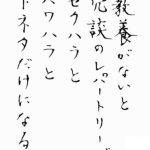 教養がないと
冗談のレパートリーが
セクハラと
パワハラと
下ネタだけになる